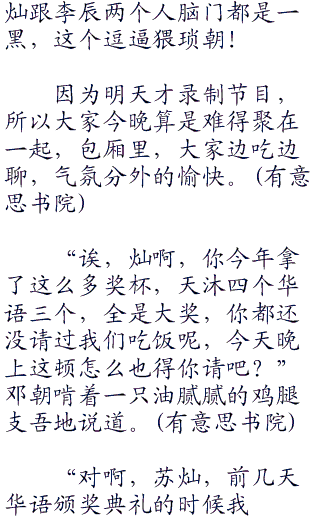 灿跟李辰两个人脑门都是一
黑，这个逗逼猥琐朝！
因为明天才录制节目，
所以大家今晚算是难得聚在
一起，包厢里，大家边吃边
聊，气氛分外的愉快。(有意
思书院)
“诶，灿啊，你今年拿
了这么多奖杯，天沐四个华
语三个，全是大奖，你都还
没请过我们吃饭呢，今天晚
上这顿怎么也得你请吧？”
邓朝啃着一只油腻腻的鸡腿
支吾地说道。(有意思书院)
“对啊，苏灿，前几天
华语颁奖典礼的时候我